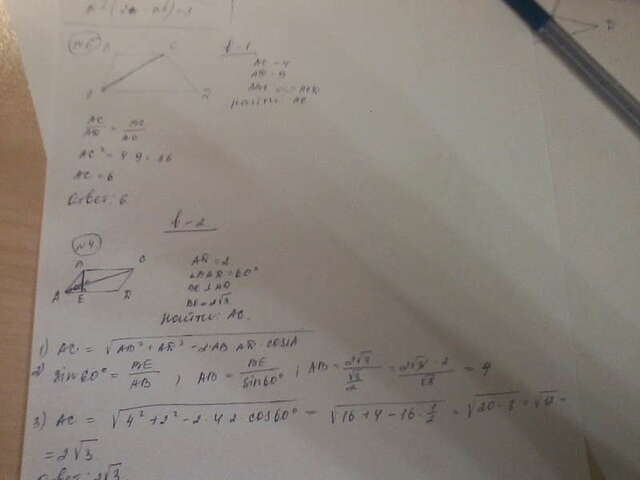 №6
B C
A D
В-1
AD = 9
Найти: AC
AC/AD = BC/AC
AC² = 4 · 9 = 36
AC = 6
Ответ: 6
В-2
№4
B C
A E D
AD = 2
∠BAD = 60°
BE ⊥ AD
BE = 2√3
Найти: AC.
1) AC = √AB² + AD² - 2·AB·AD·cos∠A
2) sin60° = BE/AB ; AB = BE/sin60° ; AB = 2√3/(√3/2) = 2√3·2/√3 = 4
3) AC = √4² + 2² - 2·4·2·cos60° = √16 + 4 - 16·1/2 = √20 - 8 = √12 =
= 2√3
Ответ: 2√3